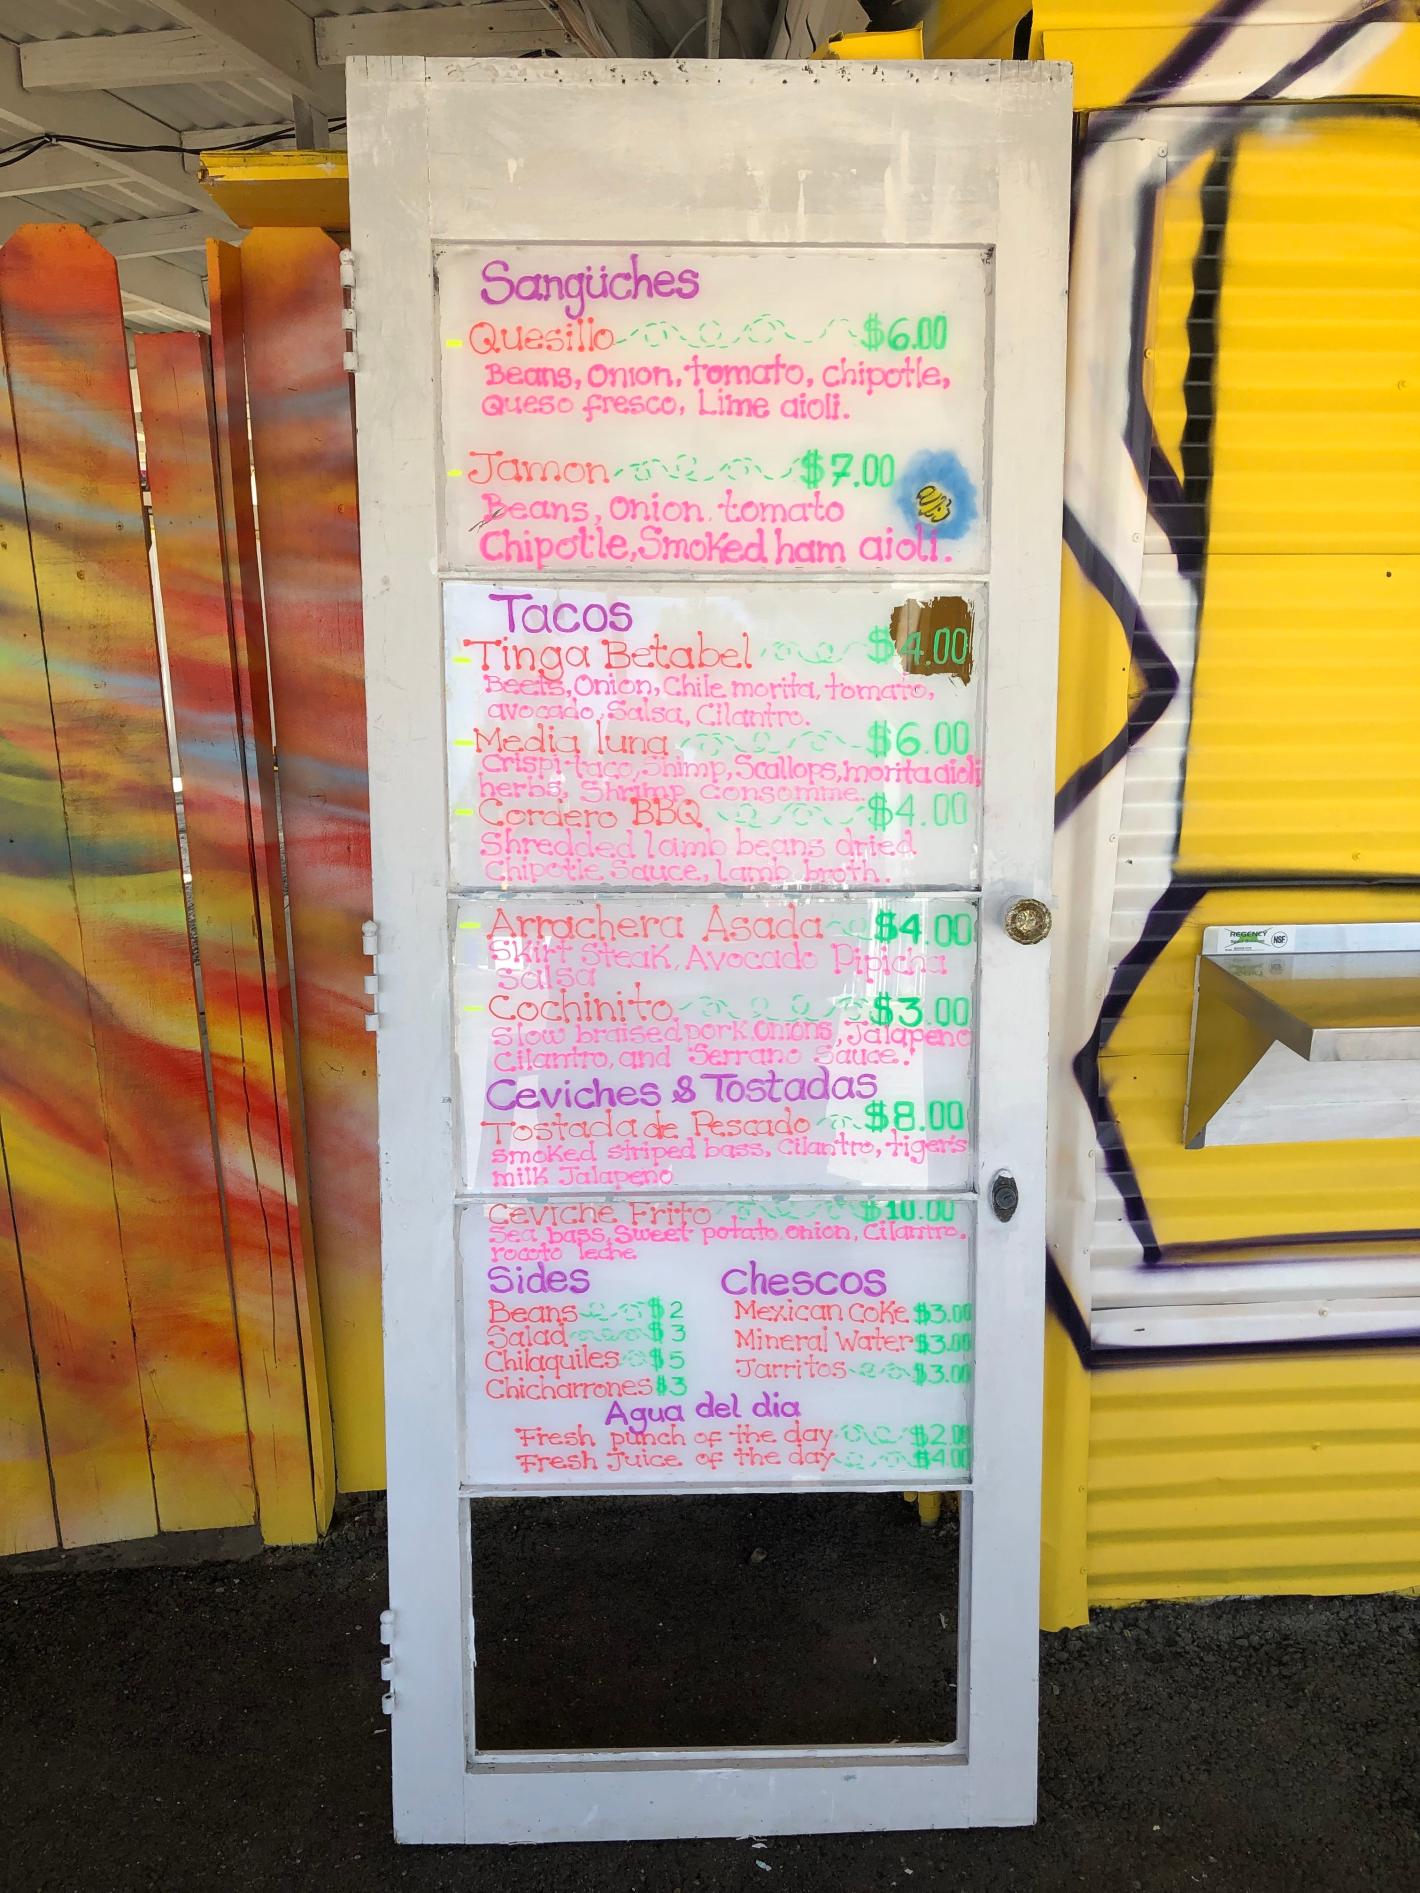 Sangüches
Quesillo $6.00
Beans, Onion, tomato, chipotle,
Queso fresco, Lime aioli.
Jamon $7.00
Beans, Onion, tomato
Chipotle, Smoked ham aioli.
Tacos
Tinga Betabel $4.00
Beets, Onion, Chile morita, tomato,
avocado, Salsa, Cilantro.
Media luna $6.00
Crispi taco, Shimp, Scallops, morita aioli
herbs, Shrimp Consomme.
Cordero BBQ $4.00
Shredded lamb beans dried
Chipotle Sauce, lamb broth.
Arrachera Asada $4.00
Skirt Steak, Avocado Pipicha
Salsa
Cochinito $3.00
Slow braised pork, onions, Jalapeno
Cilantro, and Serrano Sauce.
Ceviches & Tostadas
Tostada de Pescado $8.00
smoked striped bass, Cilantro, tiger's
milk Jalapeno
Ceviche Frito $10.00
Sea bass, Sweet potato, onion, Cilantro.
rocoto leche
Sides Chescos
Beans $2 Mexican Coke $3.00
Salad $3 Mineral Water $3.00
Chilaquiles $5 Jarritos $3.00
Chicharrones $3
Agua del dia
Fresh punch of the day $2.00
Fresh Juice of the day $4.00
REGENCY
NSF